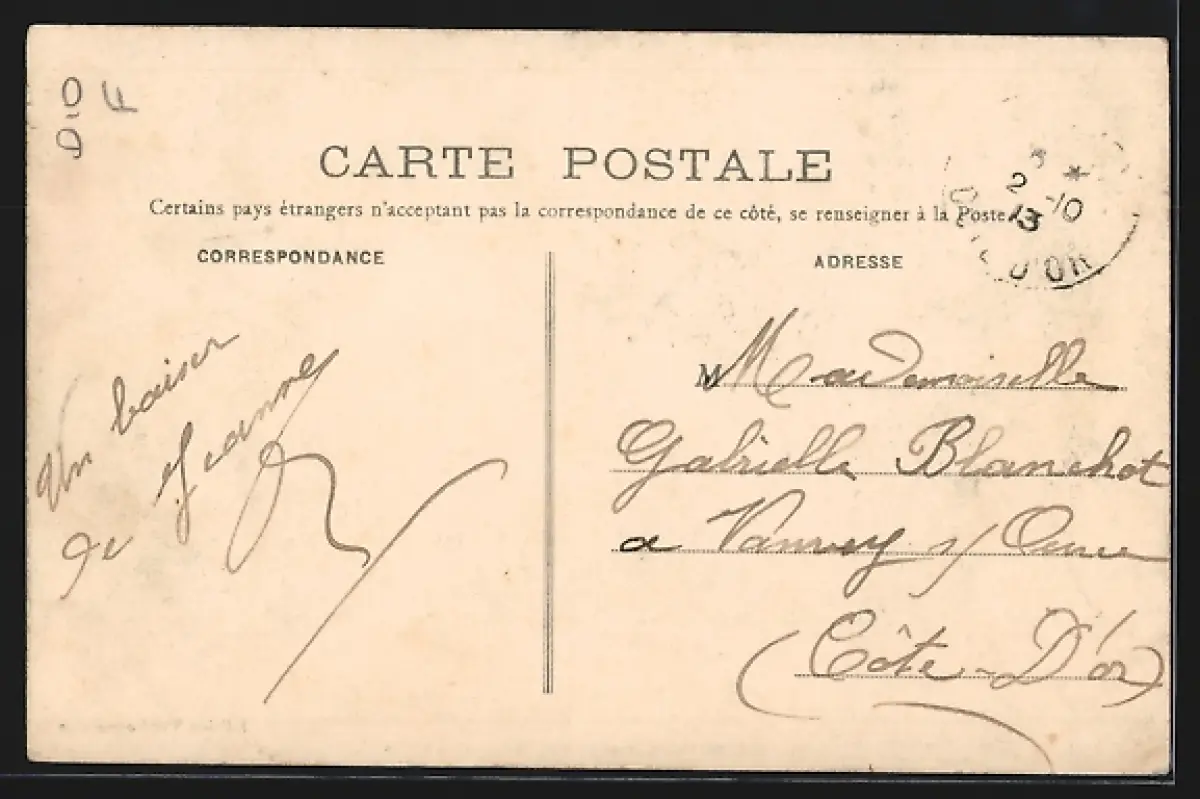 DIO
F
CARTE POSTALE
Certains pays étrangers n'acceptant pas la correspondance de ce côté, se renseigner à la Poste
CORRESPONDANCE
ADRESSE
2 -10
13
D'OR
Un baiser
de Jeanne
M Mademoiselle
Gabrielle Blanchot
a Vanvey s/ Ource
(Côte-D'or)